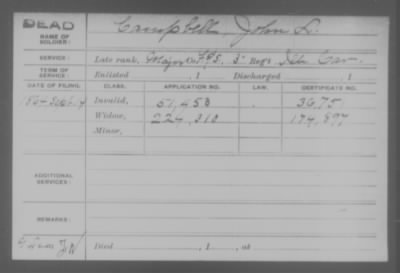 DEAD
NAME OF SOLDIER: Campbell, John L.
SERVICE: Late rank, Major, Co. F&S, 5" Reg't Ills Cav.
TERM OF SERVICE: Enlisted , 1 Discharged , 1
DATE OF FILING. CLASS. APPLICATION NO. LAW. CERTIFICATE NO.
1864 Sept. 4 Invalid, 51,453 3675
Widow, 224,310 174,897
Minor,
ADDITIONAL SERVICES:
REMARKS:
Died , 1 , at